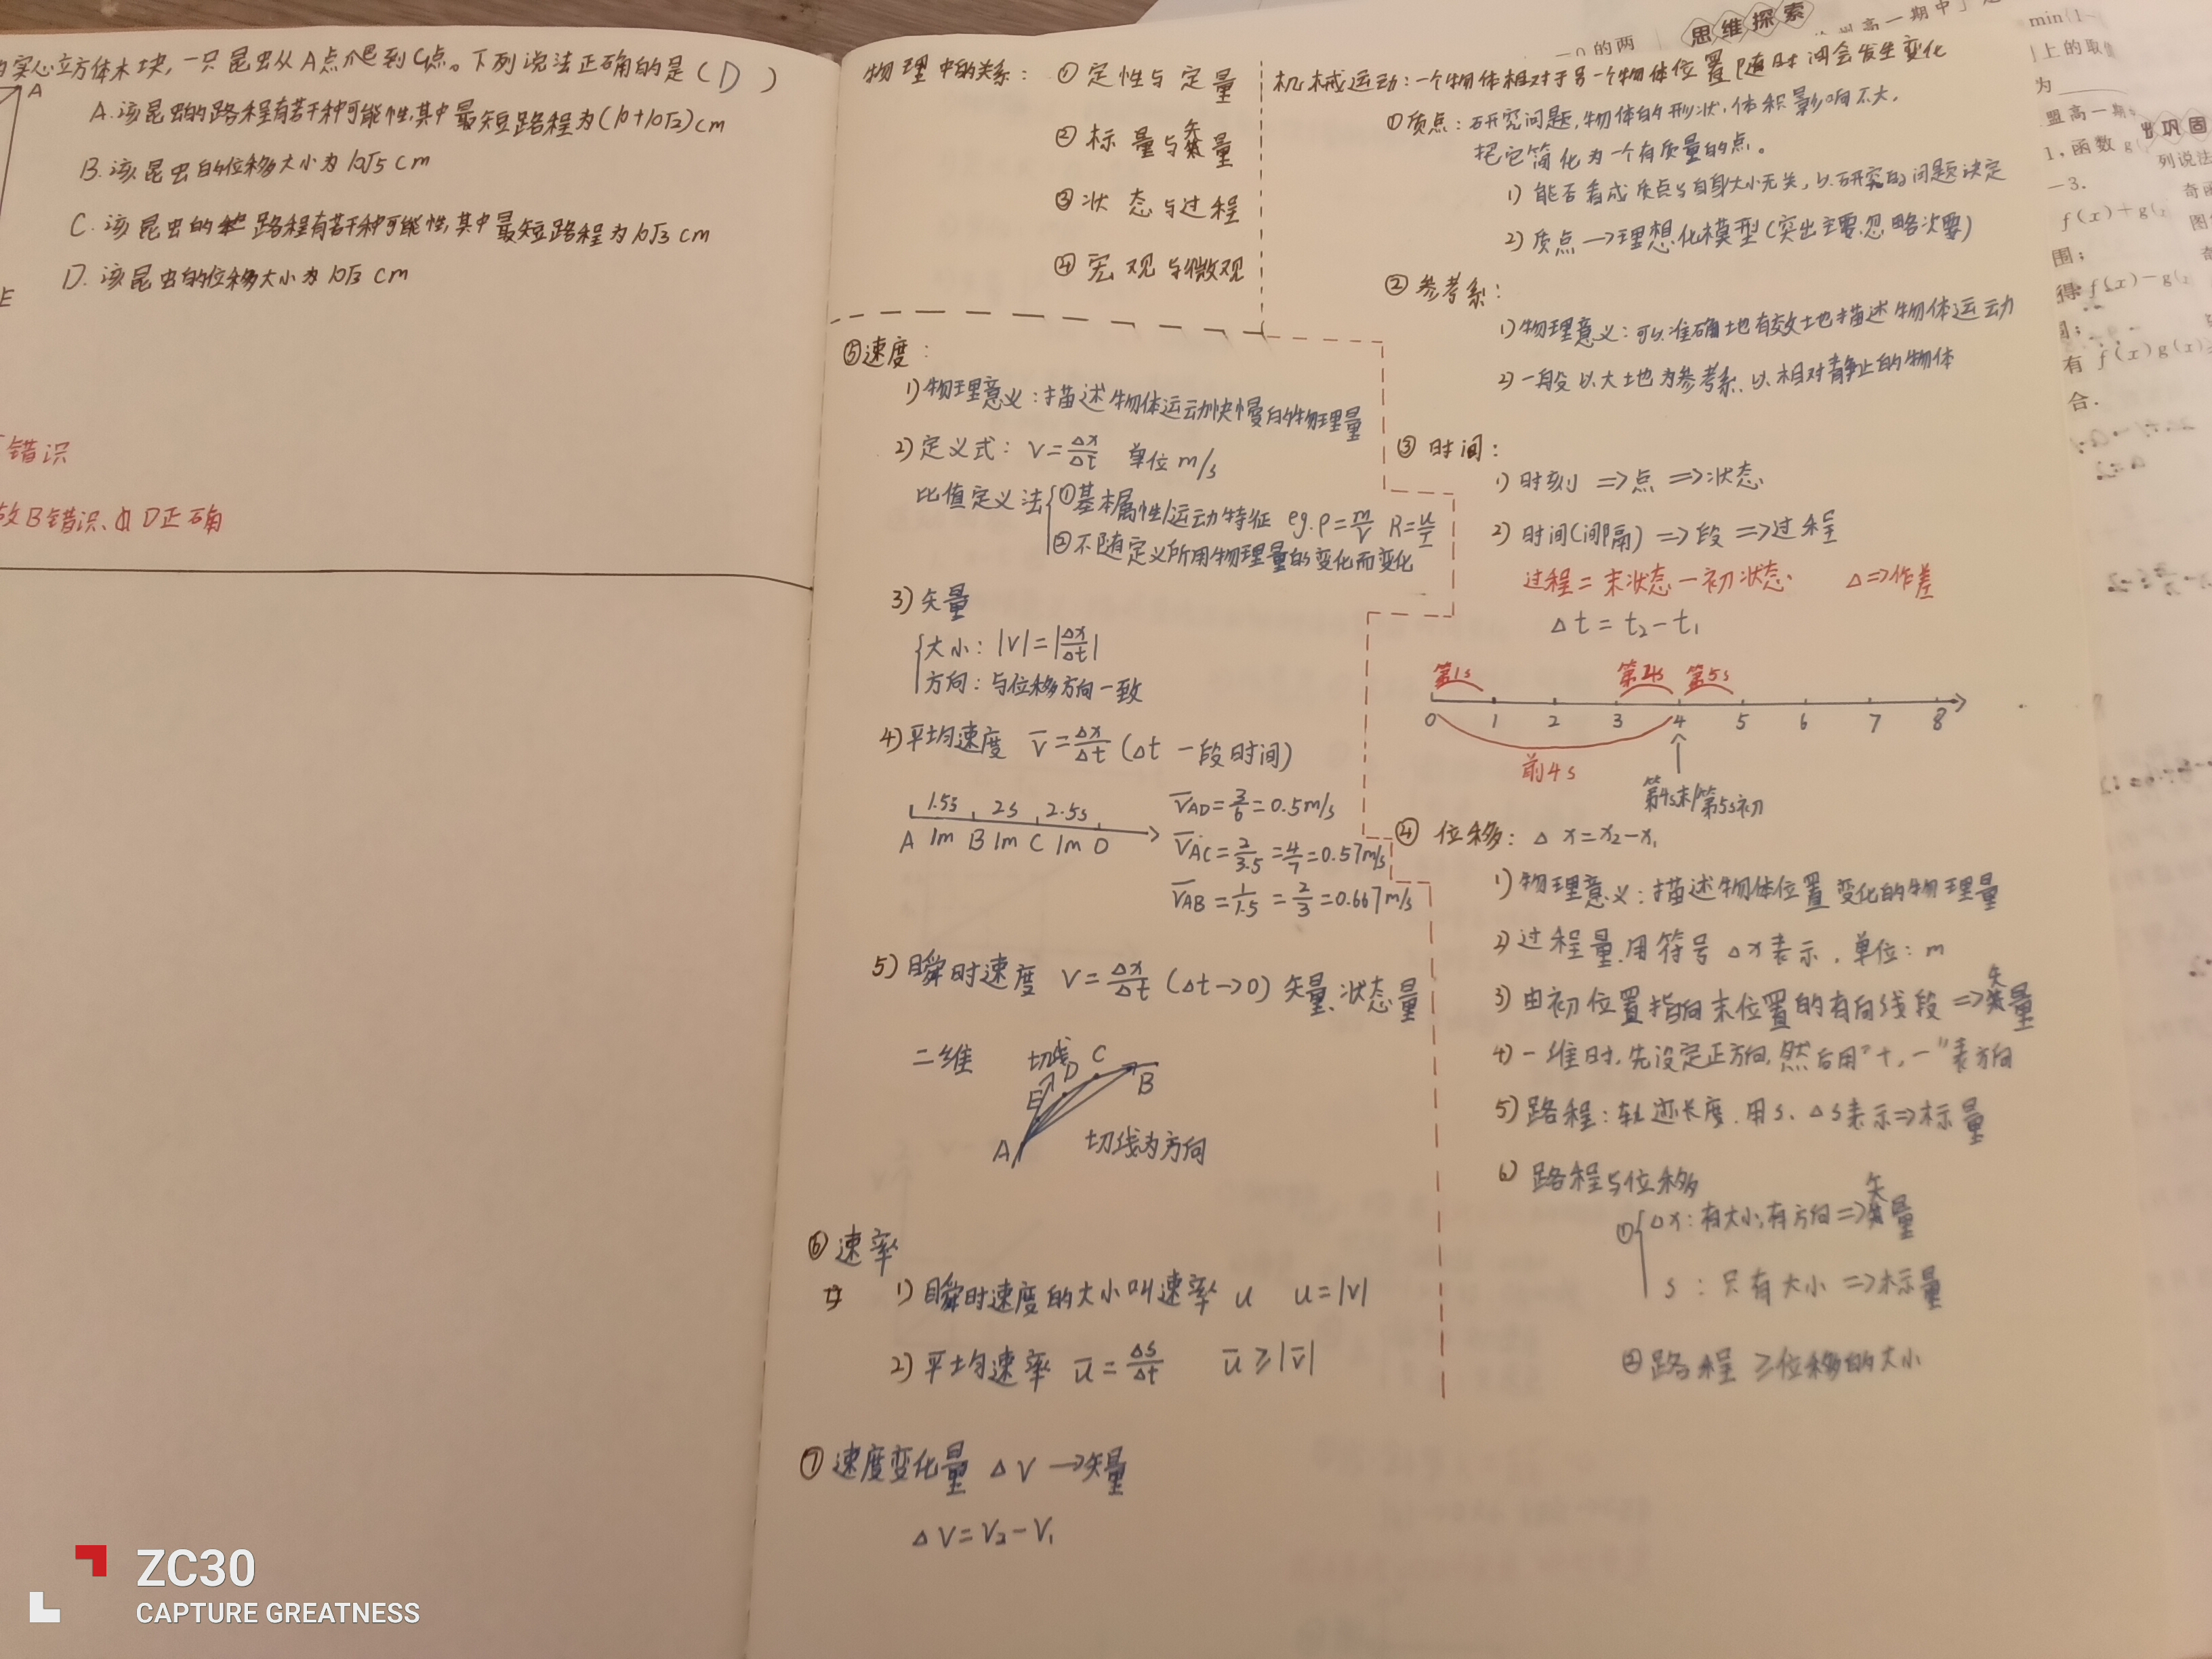 实心立方体木块,一只昆虫从A点爬到G点。下列说法正确的是(D)
A
A.该昆虫的路程有若干种可能性,其中最短路程为(10+10√2)cm
B.该昆虫的位移大小为10√5 cm
C.该昆虫的路程有若干种可能性,其中最短路程为10√3 cm
D.该昆虫的位移大小为10√3 cm
E
错识
故B错识、D正确
物理中的关系:①定性与定量
②标量与矢量
③状态与过程
④宏观与微观
机械运动:一个物体相对于另一个物体位置随时间会发生变化
①质点:研究问题,物体的形状,体积影响不大,
把它简化为一个有质量的点。
1)能否看成质点与自身大小无关,以研究的问题决定
2)质点→理想化模型(突出主要,忽略次要)
②参考系:
1)物理意义:可以准确地有效地描述物体运动
2)一般以大地为参考系,以相对静止的物体
③时间:
1)时刻⇒点⇒状态
2)时间(间隔)⇒段⇒过程
过程=末状态-初状态 Δ⇒作差
Δt=t₂-t₁
第1s 第4s 第5s
0 1 2 3 4 5 6 7 8
前4s
第4s末/第5s初
④位移:Δx=x₂-x₁
1)物理意义:描述物体位置变化的物理量
2)过程量,用符号Δx表示,单位:m
3)由初位置指向末位置的有向线段⇒矢量
4)一维时,先设定正方向,然后用"+,-"表方向
5)路程:轨迹长度,用s、Δs表示⇒标量
6)路程与位移
① Δx:有大小,有方向⇒矢量
s:只有大小⇒标量
②路程≥位移的大小
⑤速度:
1)物理意义:描述物体运动快慢的物理量
2)定义式:V=Δx/Δt 单位m/s
比值定义法 ①基本属性/运动特征 eg.ρ=m/V R=U/I
②不随定义所用物理量的变化而变化
3)矢量
大小:|V|=|Δx/Δt|
方向:与位移方向一致
4)平均速度 V̄=Δx/Δt(Δt 一段时间)
1.5s 2s 2.5s
A 1m B 1m C 1m D
V̄AD=3/6=0.5m/s
V̄AC=2/3.5=4/7=0.57m/s
V̄AB=1/1.5=2/3=0.667m/s
5)瞬时速度 V=Δx/Δt(Δt→0)矢量、状态量
二维 切线 D C
E B
A 切线为方向
⑥速率
1)瞬时速度的大小叫速率 u u=|v|
2)平均速率 ū=Δs/Δt ū≥|v̄|
⑦速度变化量 ΔV→矢量
ΔV=V₂-V₁
思维探索
巩固
1.函数g
列说法
-3.
f(x)+g(
围;
得f(x)-g(
有f(x)g(x)=
合.
ZC30
CAPTURE GREATNESS